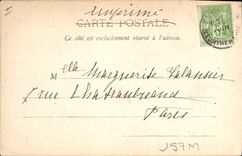 Imprimé
CARTE POSTALE
Ce côté est exclusivement réservé à l'adresse.
Mlle Marguerite
7 rue Chateaubriand
Paris
157M